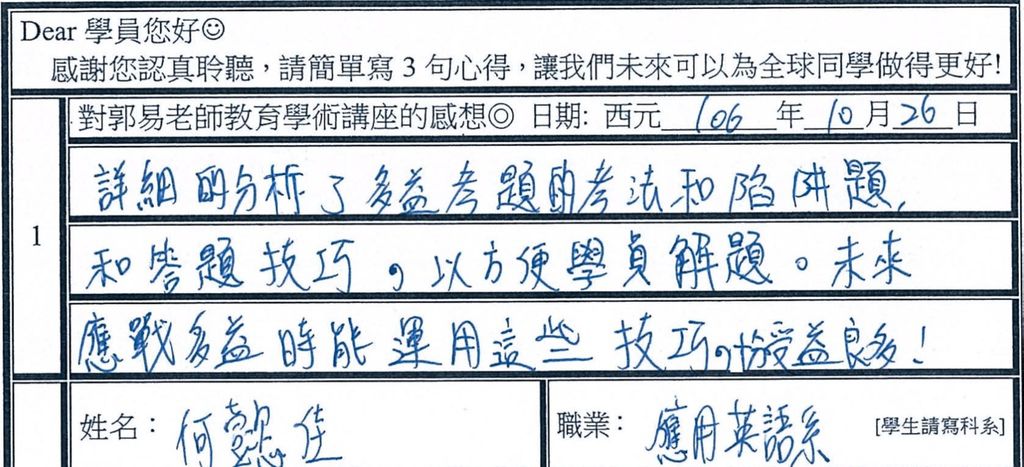 Dear 學員您好☺
感謝您認真聆聽，請簡單寫 3 句心得，讓我們未來可以為全球同學做得更好!
對郭易老師教育學術講座的感想◎ 日期: 西元 106 年 10 月 26 日
1
詳細的分析了多益考題的考法和陷阱題,
和答題技巧，以方便學員解題。未來
應戰多益時能運用這些技巧，受益良多！
姓名： 何懿佳
職業： 應用英語系 [學生請寫科系]